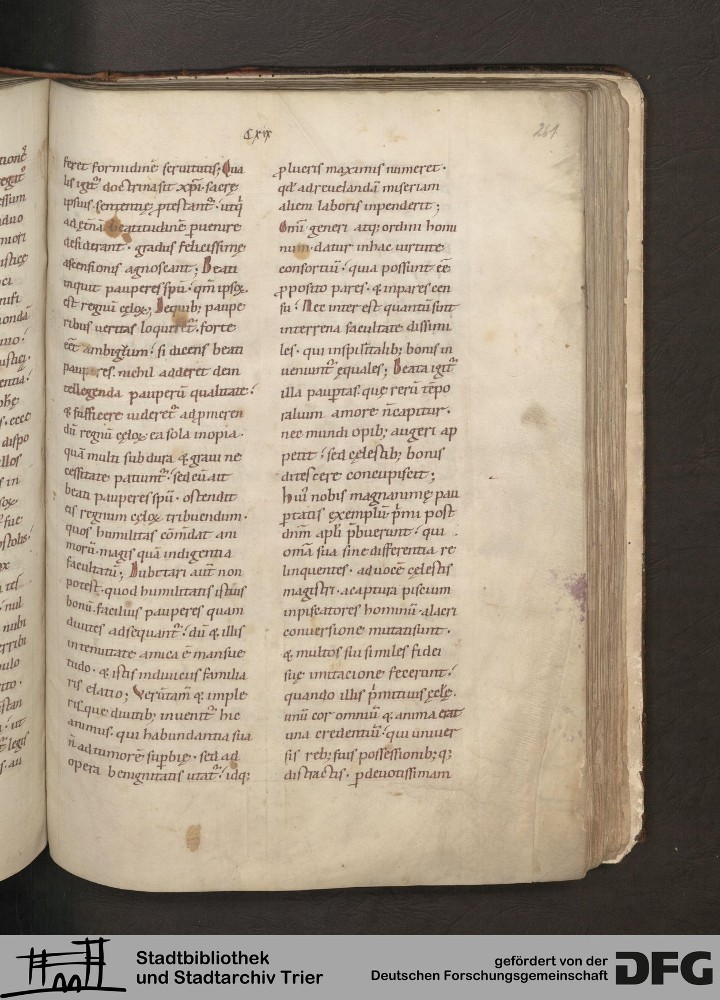 Cxix
261
feret formidinē seruitutis; Qua
lis igit᷑ doctrina sit xp̄i. sacrę
ipsius sententię p̄testant᷑. utq̇
ad ęt̄nā beatitudinē puenire
desiderant. gradus felicissimę
ascensionis agnoscant; Beati
inquit pauperes sp̄u. qm̄ ipsoꝝ
est regnū cęloꝝ; De quib; paupe
ribus ueritas loqueret᷑. forte
eēt ambiguum. si dicens beati
pauperes. nichil adderet de in
tellegenda pauperū qualitate.
& sufficere uideret᷑ ad p̄meren
dū regnū cęloꝝ ea sola inopia.
quā multi sub dura & graui ne
cessitate patiunt᷑. sed cū ait
beati pauperes sp̄u. ostendit
eis regnum cęloꝝ tribuendum.
quos humilitas cōmdat ani
morū magis quā indigentia
facultatū; Dubitari aut̄ non
potest. quod humilitatis istius
bonū. facilius pauperes quam
diuites adsequant᷑. dū & illis
in tenuitate amica ē mansue
tudo. & istis in diuiciis familia
ris elatio; Verūtam̄ & in ple
risque diuitib; inuenit᷑ hic
animus. qui habundantia sua
n̄ ad tumorē supbię. sed ad
opera benignitatis utat᷑. idq;
p lucris maximis numeret.
qd̄ ad reuelandā miseriam
alieni laboris inpenderit;
Omī generi atq; ordini homi
num. datur in hac uirtute
consortiū. quia possunt eē
pposito pares. & inpares cen
su. Nec interest quantū sint
in terrena facultate dissimi
les. qui in sp̄italib; bonis in
ueniunt᷑ ęquales; Beata igit᷑
illa paup̱tas. quę rerū tēpo
ralium amore n̄ capitur.
nec mundi opib; augeri ap
petit. sed cęlestib; bonis
ditescere concupiscit;
Huī nobis magnanimę pau
ptatis exemplū p̄mi post
dn̄m apl̄i p̄buerunt. qui
omā sua sine differentia re
linquentes. ad uocē cęlestis
magistri. a captura piscium
in piscatores hominū. alacri
conuersione mutati sunt.
& multos sui similes fidei
suę imitacione fecerunt.
quando illis p̄mitiuis ęclę.
unū cor omniū & anima erat
una credentiū. qui uniuer
sis reb; suis possessionib; q;
distractis. p deuotissimam
Stadtbibliothek
und Stadtarchiv Trier
gefördert von der
Deutschen Forschungsgemeinschaft
DFG